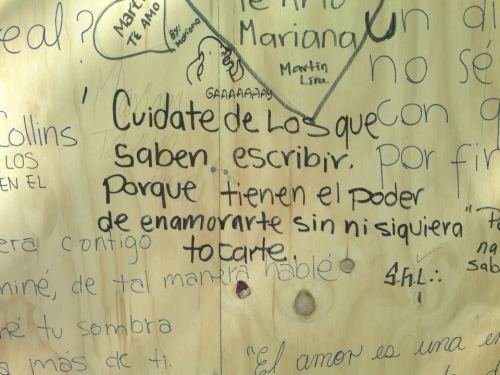 real?
Mart
TE AMO
By:
Mariana
TE AMO
Mariana
Martin
un di
no sé
GAAAAAAAY
con
Cuidate de Los que
Collins
LOS
EN EL
saben.. escribir.
por fin
Porque tienen el poder
de enamorarte sin ni siquiera
tocarte.
era contigo
na
sab
miné, de tal manera hablé
S.H.L.:.
né tu sombra
a más de ti.
"El amor es una en